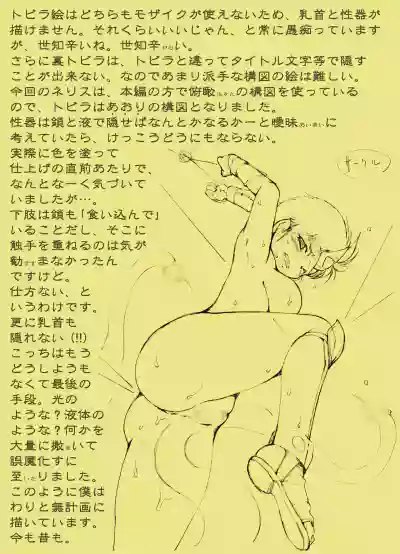 トビラ絵はどちらもモザイクが使えないため、乳首と性器が
描けません。それくらいいいじゃん、と常に愚痴っています
が、世知辛いね。世知辛がらい。
さらに裏トビラは、トビラと違ってタイトル文字等で隠す
ことが出来ない。なのであまり派手な構図の絵は難しい。
今回のネリスは、本編の方で俯瞰ふかんの構図を使っている
ので、トビラはあおりの構図となりました。
性器は鎖と液で隠せばなんとかなるかーと曖昧あいまいに
考えていたら、けっこうどうにもならない。
実際に色を塗って
仕上げの直前あたりで、
なんとなーく気づいて
いましたが…。
下肢は鎖も「食い込んで」
いることだし、そこに
触手を重ねるのは気が
勧すすまなかったん
ですけど。
仕方ない、と
いうわけです。
更に乳首も
隠れない(!!)
こっちはもう
どうしようも
なくて最後の
手段。光の
ような？液体の
ような？何かを
大量に撒まいて
誤魔化すに
至いたりました。
このように僕は
わりと無計画に
描いています。
今も昔も。
サークル